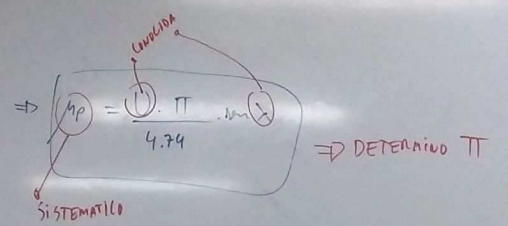 CONOCIDA
⇒ μp = U . π . sen λ
4.74
⇒ DETERMINO π
SISTEMATICO